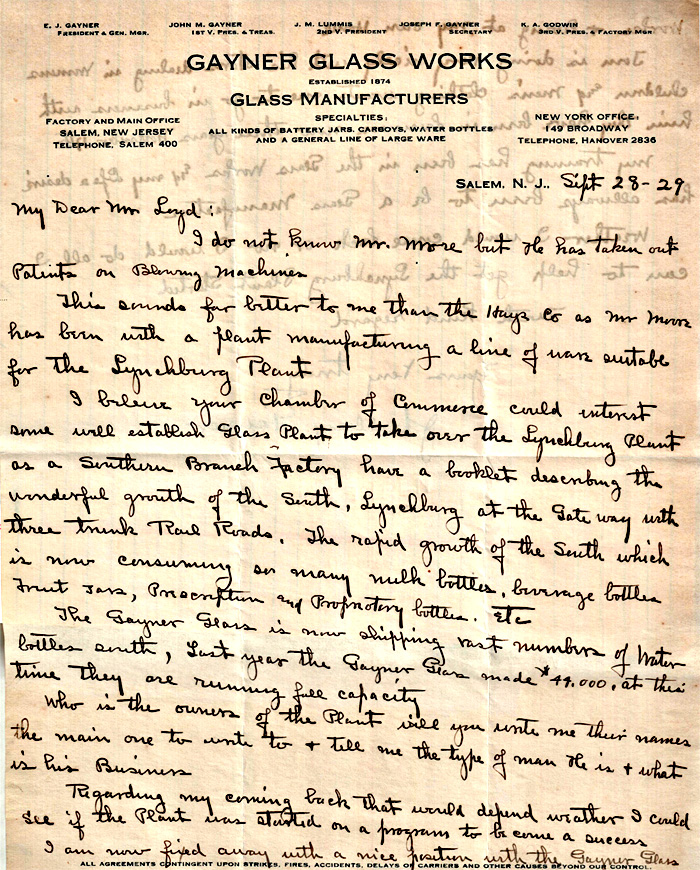 E. J. GAYNER JOHN M. GAYNER J. M. LUMMIS JOSEPH F. GAYNER K. A. GODWIN
PRESIDENT & GEN. MGR. 1ST V. PRES. & TREAS. 2ND V. PRESIDENT SECRETARY 3RD V. PRES. & FACTORY MGR.
GAYNER GLASS WORKS
ESTABLISHED 1874
GLASS MANUFACTURERS
FACTORY AND MAIN OFFICE
SALEM, NEW JERSEY
TELEPHONE, SALEM 400
SPECIALTIES:
ALL KINDS OF BATTERY JARS, CARBOYS, WATER BOTTLES
AND A GENERAL LINE OF LARGE WARE
NEW YORK OFFICE:
149 BROADWAY
TELEPHONE, HANOVER 2836
SALEM, N. J., Sept 28-29
My Dear Mr Loyd:
I do not know Mr. More but He has taken out
Patents on Blowing Machines
This sounds far better to me than the Hays Co as Mr Moore
has been with a plant manufacturing a line of ware suitabe
for the Lynchburg Plant
I believe your Chamber of Commerce could interest
some well establish Glass Plant to take over the Lynchburg Plant
as a Southern Branch Factory have a booklet describing the
wonderful growth of the South, Lynchburg at the Gate way with
three trunk Rail Roads. The rapid growth of the South which
is now consuming so many milk bottles, beverage bottles
Fruit Jars, Prescription and Propriotory bottles. Etc
The Gayner Glass is now shipping vast numbers of Water
bottles south, Last year the Gayner Glass made $44.000, at this
time they are running full capacity
Who is the owners of the Plant will you write me their names
the main one to write to & tell me the type of man He is & what
is his Business
Regarding my coming back that would depend weather I could
see if the Plant was started on a program to become a success
I am now fixed away with a nice position with the Gayner Glass
ALL AGREEMENTS CONTINGENT UPON STRIKES, FIRES, ACCIDENTS, DELAYS OF CARRIERS AND OTHER CAUSES BEYOND OUR CONTROL.